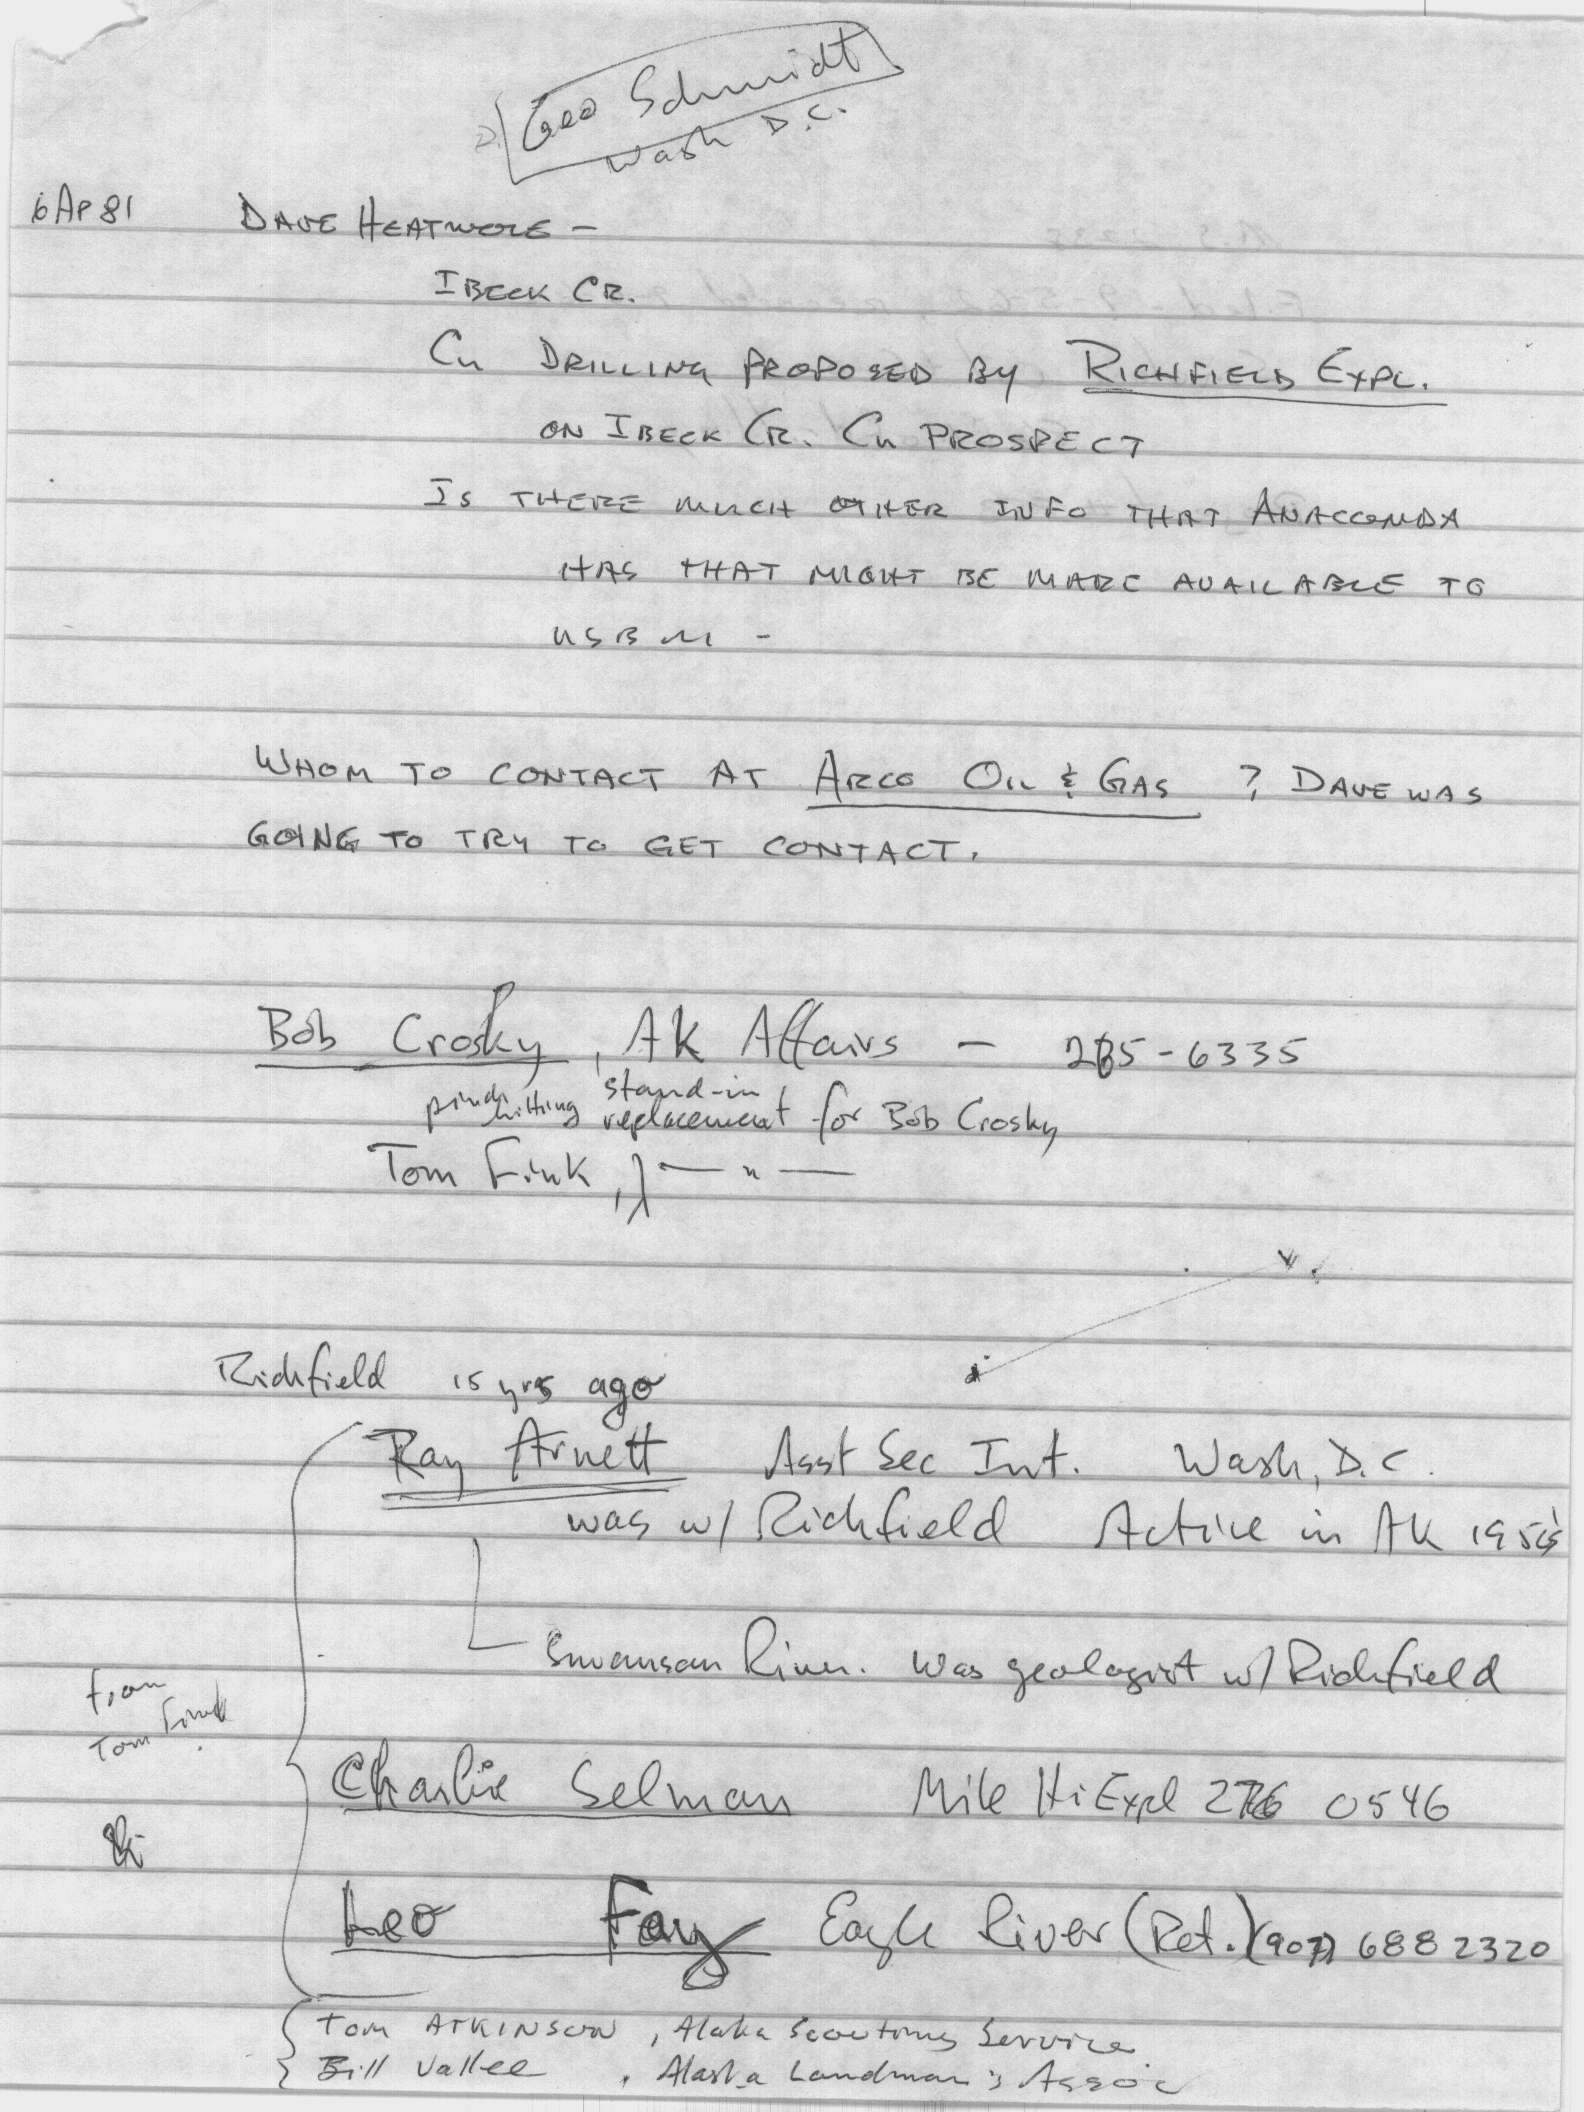 Geo Schmidt
Wash D.C.
6 Ap 81 DAVE HEATWOLE -
IBECK CR.
Cu DRILLING PROPOSED BY RICHFIELD EXPL.
ON IBECK CR. Cu PROSPECT
IS THERE MUCH OTHER INFO THAT ANACONDA
HAS THAT MIGHT BE MADE AVAILABLE TO
USBM -
WHOM TO CONTACT AT ARCO OIL & GAS ? DAVE WAS
GOING TO TRY TO GET CONTACT.
Bob Crosky, AK Affairs - 265-6335
pinch hitting stand-in replacement for Bob Crosky
Tom Fink, } — " —
Richfield 15 yrs ago
Ray Arnett Asst Sec Int. Wash, D.C.
was w/ Richfield Active in AK
Swanson River. Was geologist w/ Richfield
from
Tom Fink
Charlie Selman Mile Hi Expl 276 0546
Leo Fay Eagle River (Ret.) (907) 688 2320
Tom ATKINSON, Alaska Scouting Service
Bill Vallee, Alaska Landman's Assoc